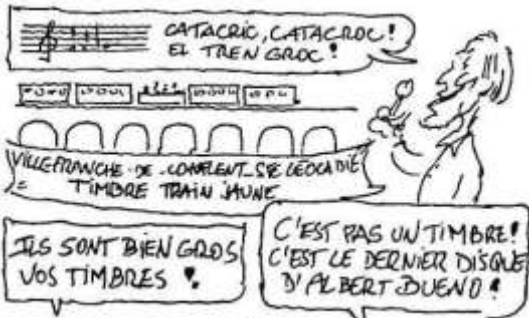 CATACRIC, CATACROC!
EL TREN GROC!
VILLEFRANCHE-DE-CONFLENT-STE LEOCADIE
= TIMBRE TRAIN JAUNE
ILS SONT BIEN GROS
VOS TIMBRES!
C'EST PAS UN TIMBRE!
C'EST LE DERNIER DISQUE
D'ALBERT BUENO!